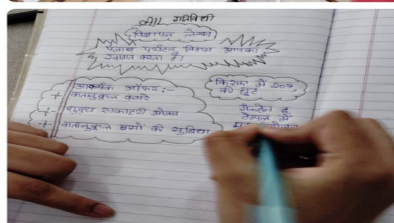 AIL गतिविधी
विज्ञापन लेखन
पंजाब पर्यटन विभाग आपका
स्वागत करता है।
आकर्षक ऑफर:
वातानुकूल कमरे
शुद्ध शाकाहारी भोजन
वातानुकूल बसों की सुविधा
किराए में 20%
की छूट
गोल्डन
टेम्पल में